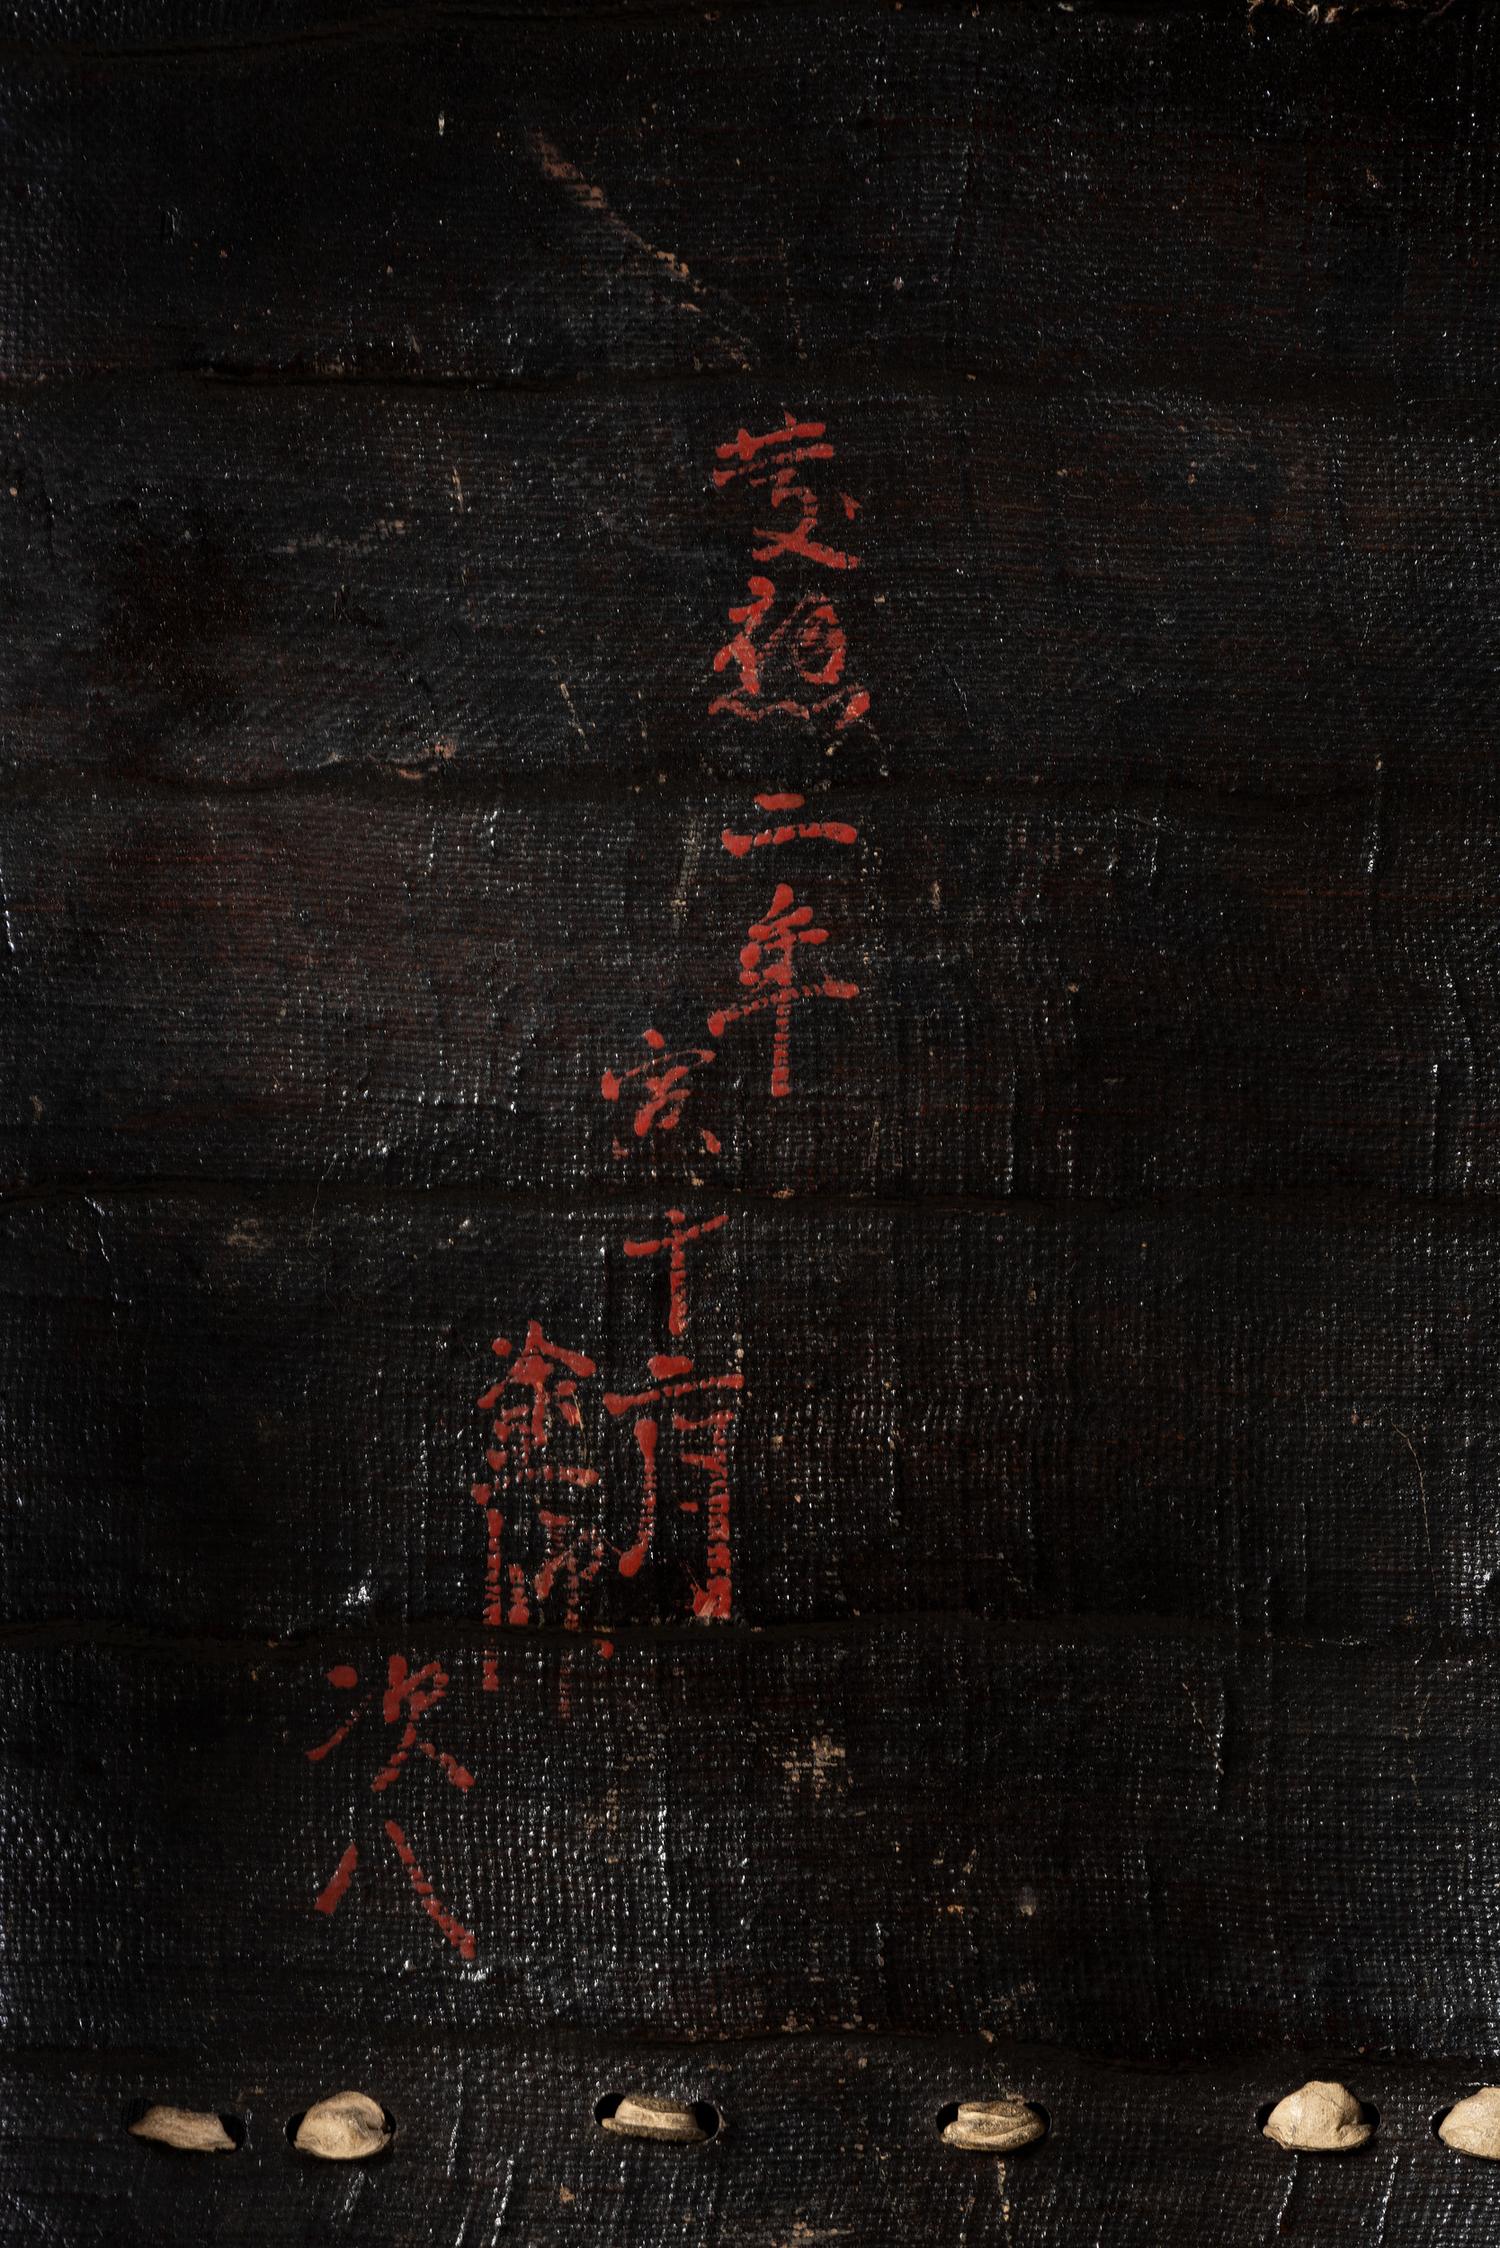 慶應二年
寅十二月
塗師
次八